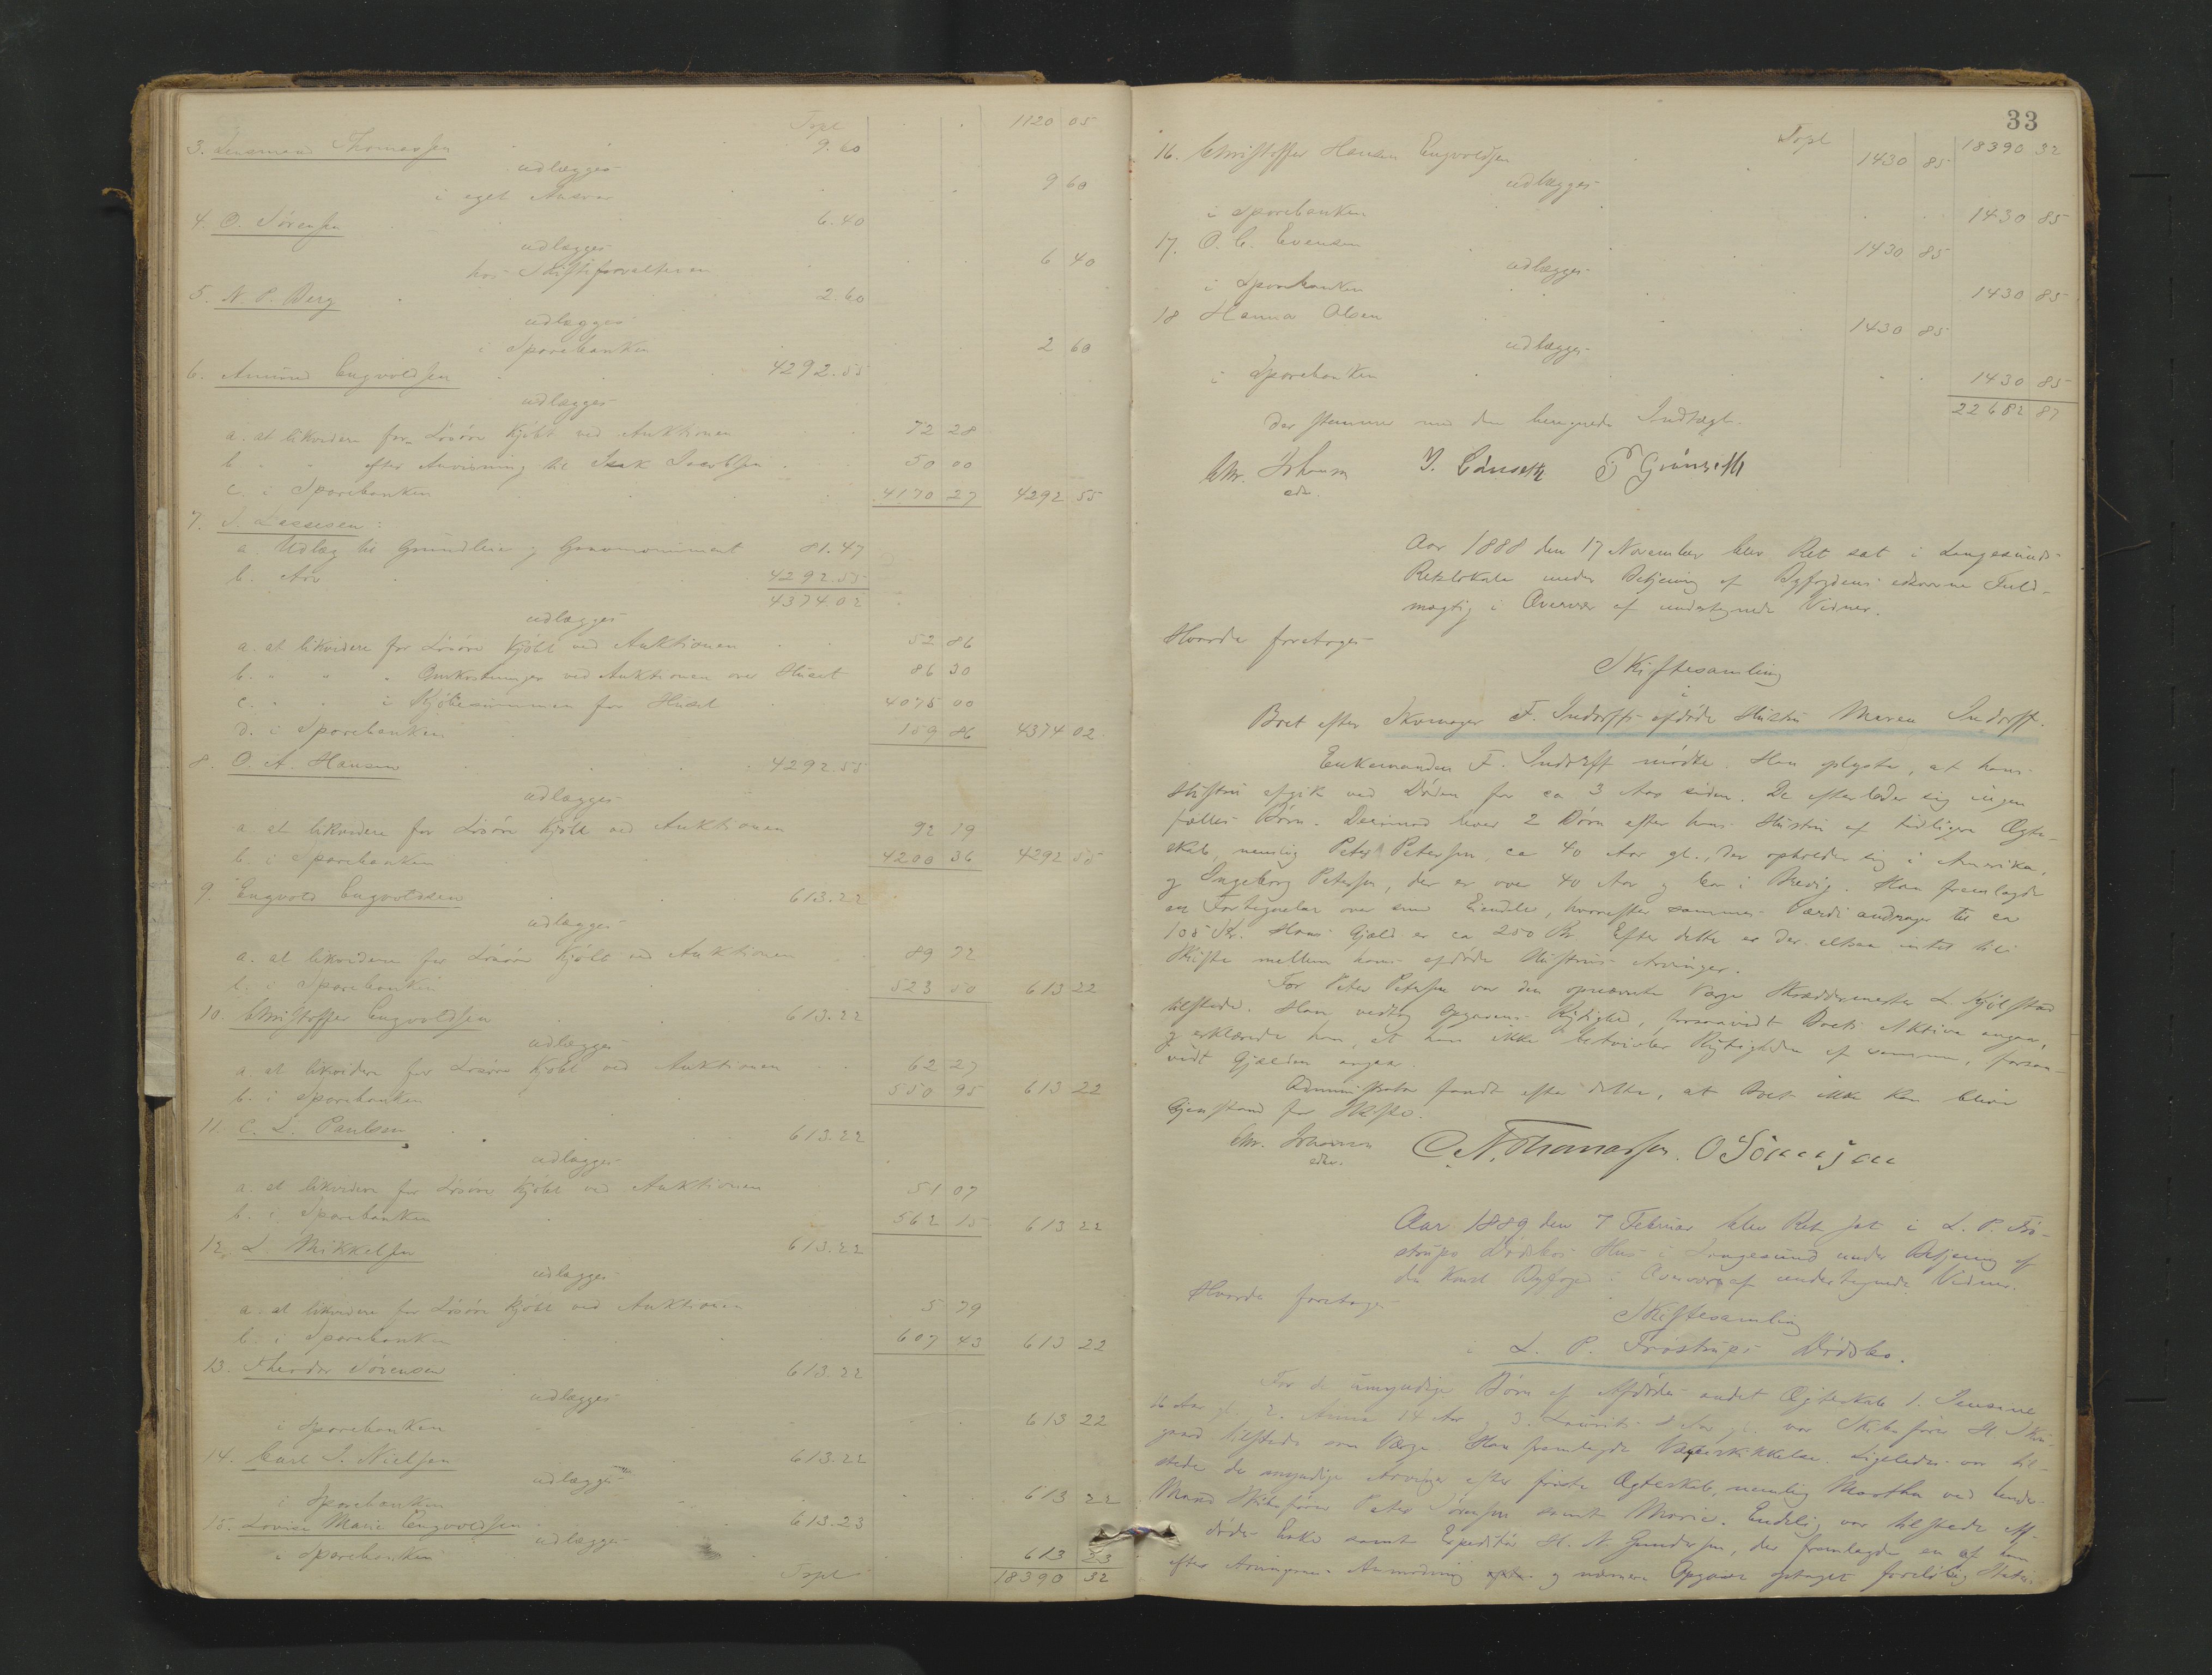 Trpt 1120 05
3. Lensmand Thomassen 9.60
udlægges
i eget Ansvar 9 60
4. O. Sörensen 6.40
udlægges
hos Skifteforvalteren 6 40
5. N. P. Berg 2.60
udlægges
i Sparebanken 2 60
6. Amund Engvoldsen 4292.55
udlægges
a. at likvidere for Lösöre kjöbt ved Auktionen 72 28
b. " " efter Anvisning til Isak Jacobsen 50 00
c. i Sparebanken 4170 27 4292 55
7. I. Lassesen:
a. Udlæg til Grundleie og Gravmonument 81.47
b. Arv 4292.55
4374.02
udlægges
a. at likvidere for Lösöre kjöbt ved Auktionen 52 86
b. " " " Omkostninger ved Auktionen over Huset 86 30
c. " " i Kjöbesummen for Huset 4075 00
d. i Sparebanken 159 86 4374 02
8. O. A. Hansen 4292.55
udlægges
a. at likvidere for Lösöre kjöbt ved Auktionen 92 19
b. i Sparebanken 4200 36 4292 55
9. Engvold Engvoldsen 613.22
udlægges
a. at likvidere for Lösöre kjöbt ved Auktionen 89 72
b. i Sparebanken 523 50 613 22
10. Christoffer Engvoldsen 613.22
udlægges
a. at likvidere for Lösöre kjöbt ved Auktionen 62 27
b. i Sparebanken 550 95 613 22
11. C. L. Paulsen 613.22
udlægges
a. at likvidere for Lösöre kjöbt ved Auktionen 51 07
b. i Sparebanken 562 15 613 22
12. L. Mikkelsen 613.22
udlægges
a. at likvidere for Lösöre kjöbt ved Auktionen 5 79
b. i Sparebanken 607 43 613 22
13. Theodor Sörensen 613.22
udlægges
i Sparebanken 613 22
14. Carl J. Nielsen 613.22
udlægges
i Sparebanken 613 22
15. Lovise Marie Engvoldsen 613.23
udlægges
i Sparebanken 613 23
Trpt 18390 32
33
Trpt 18390 32
16. Christoffer Hansen Engvoldsen 1430 85
udlægges
i Sparebanken 1430 85
17. O. C. Evensen 1430 85
udlægges
i Sparebanken 1430 85
18 Hanna Olsen 1430 85
udlægges
i Sparebanken 1430 85
22682 87
der stemmer med den beregnede Indtægt.
Chr. Johnsen
edsv.
Aar 1888 den 17 November blev Ret sat i Langesunds
Retslokale under Betjening af Byfogdens edsvorne Fuld-
mægtig i Overvær af undertegnede Vidner.
Hvorda foretoges
Skiftesamling
i
Boet efter Skomager F. Indorffs afdöde Hustru Maren Indorff.
Enkemanden F. Indorff mödte. Han oplyste, at hans
Hustru afgik ved Döden for ca 3 Aar siden. De efterlader sig ingen
fælles Börn. Derimod lever 2 Börn efter hans Hustru af tidligere Ægte-
skab, nemlig Peter Petersen, ca 40 Aar gl., der opholder sig i Amerika,
og Ingeborg Petersen, der er over 40 Aar og bor i Brevig. Han fremlagde
en Fortegnelse over sine Eiendele, hvorefter sammes Værdi andrager til ca
105 Kr. Hans Gjæld er ca 250 Kr. Efter dette er der altsaa intet til
Skifte mellem hans afdöde Hustrus Arvinger.
For Peter Petersen var den opnævnte Værge Skræddermester L. Kjölstad
tilstede. Han vedtog Opgavens Rigtighed, forsaavidt Boets Aktiva angaar,
og erklærede han, at han ikke betvivler Rigtigheden af samme, forsaa-
vidt Gjælden angaar.
Administrator fandt efter dette, at Boet ikke kan blive
Gjenstand for Skifte.
Chr. Johnsen
edsv.
C. N. Thomassen. O Sörensen
Aar 1889 den 7 Februar blev Ret sat i L. P. Frö-
strups Dödsbos Hus i Langesund under Betjening af
den konst. Byfoged i Overværelse af undertegnede Vidner.
Hvorda foretoges
Skiftesamling
i L. P. Fröstrups Dödsbo.
For de umyndige Börn af Afdödes andet Ægteskab 1. Jensine
16 Aar gl. 2. Anna 14 Aar og 3. Laurits 8 Aar var Skibsförer H
tilstede som Værge. Han fremlagde Værgebeskikkelse. Ligeledes var til-
stede de myndige Arvinger efter förste Ægteskab, nemlig Martha ved hendes
Mand Skibsförer Peter Sörensen samt Marie. Endelig var tilstede Af-
dödes Enke samt Expeditör H. N. Gundersen, der fremlagde en af ham
efter Arvingernes Anmodning og nærmere Opgave optaget foreløbig Status.